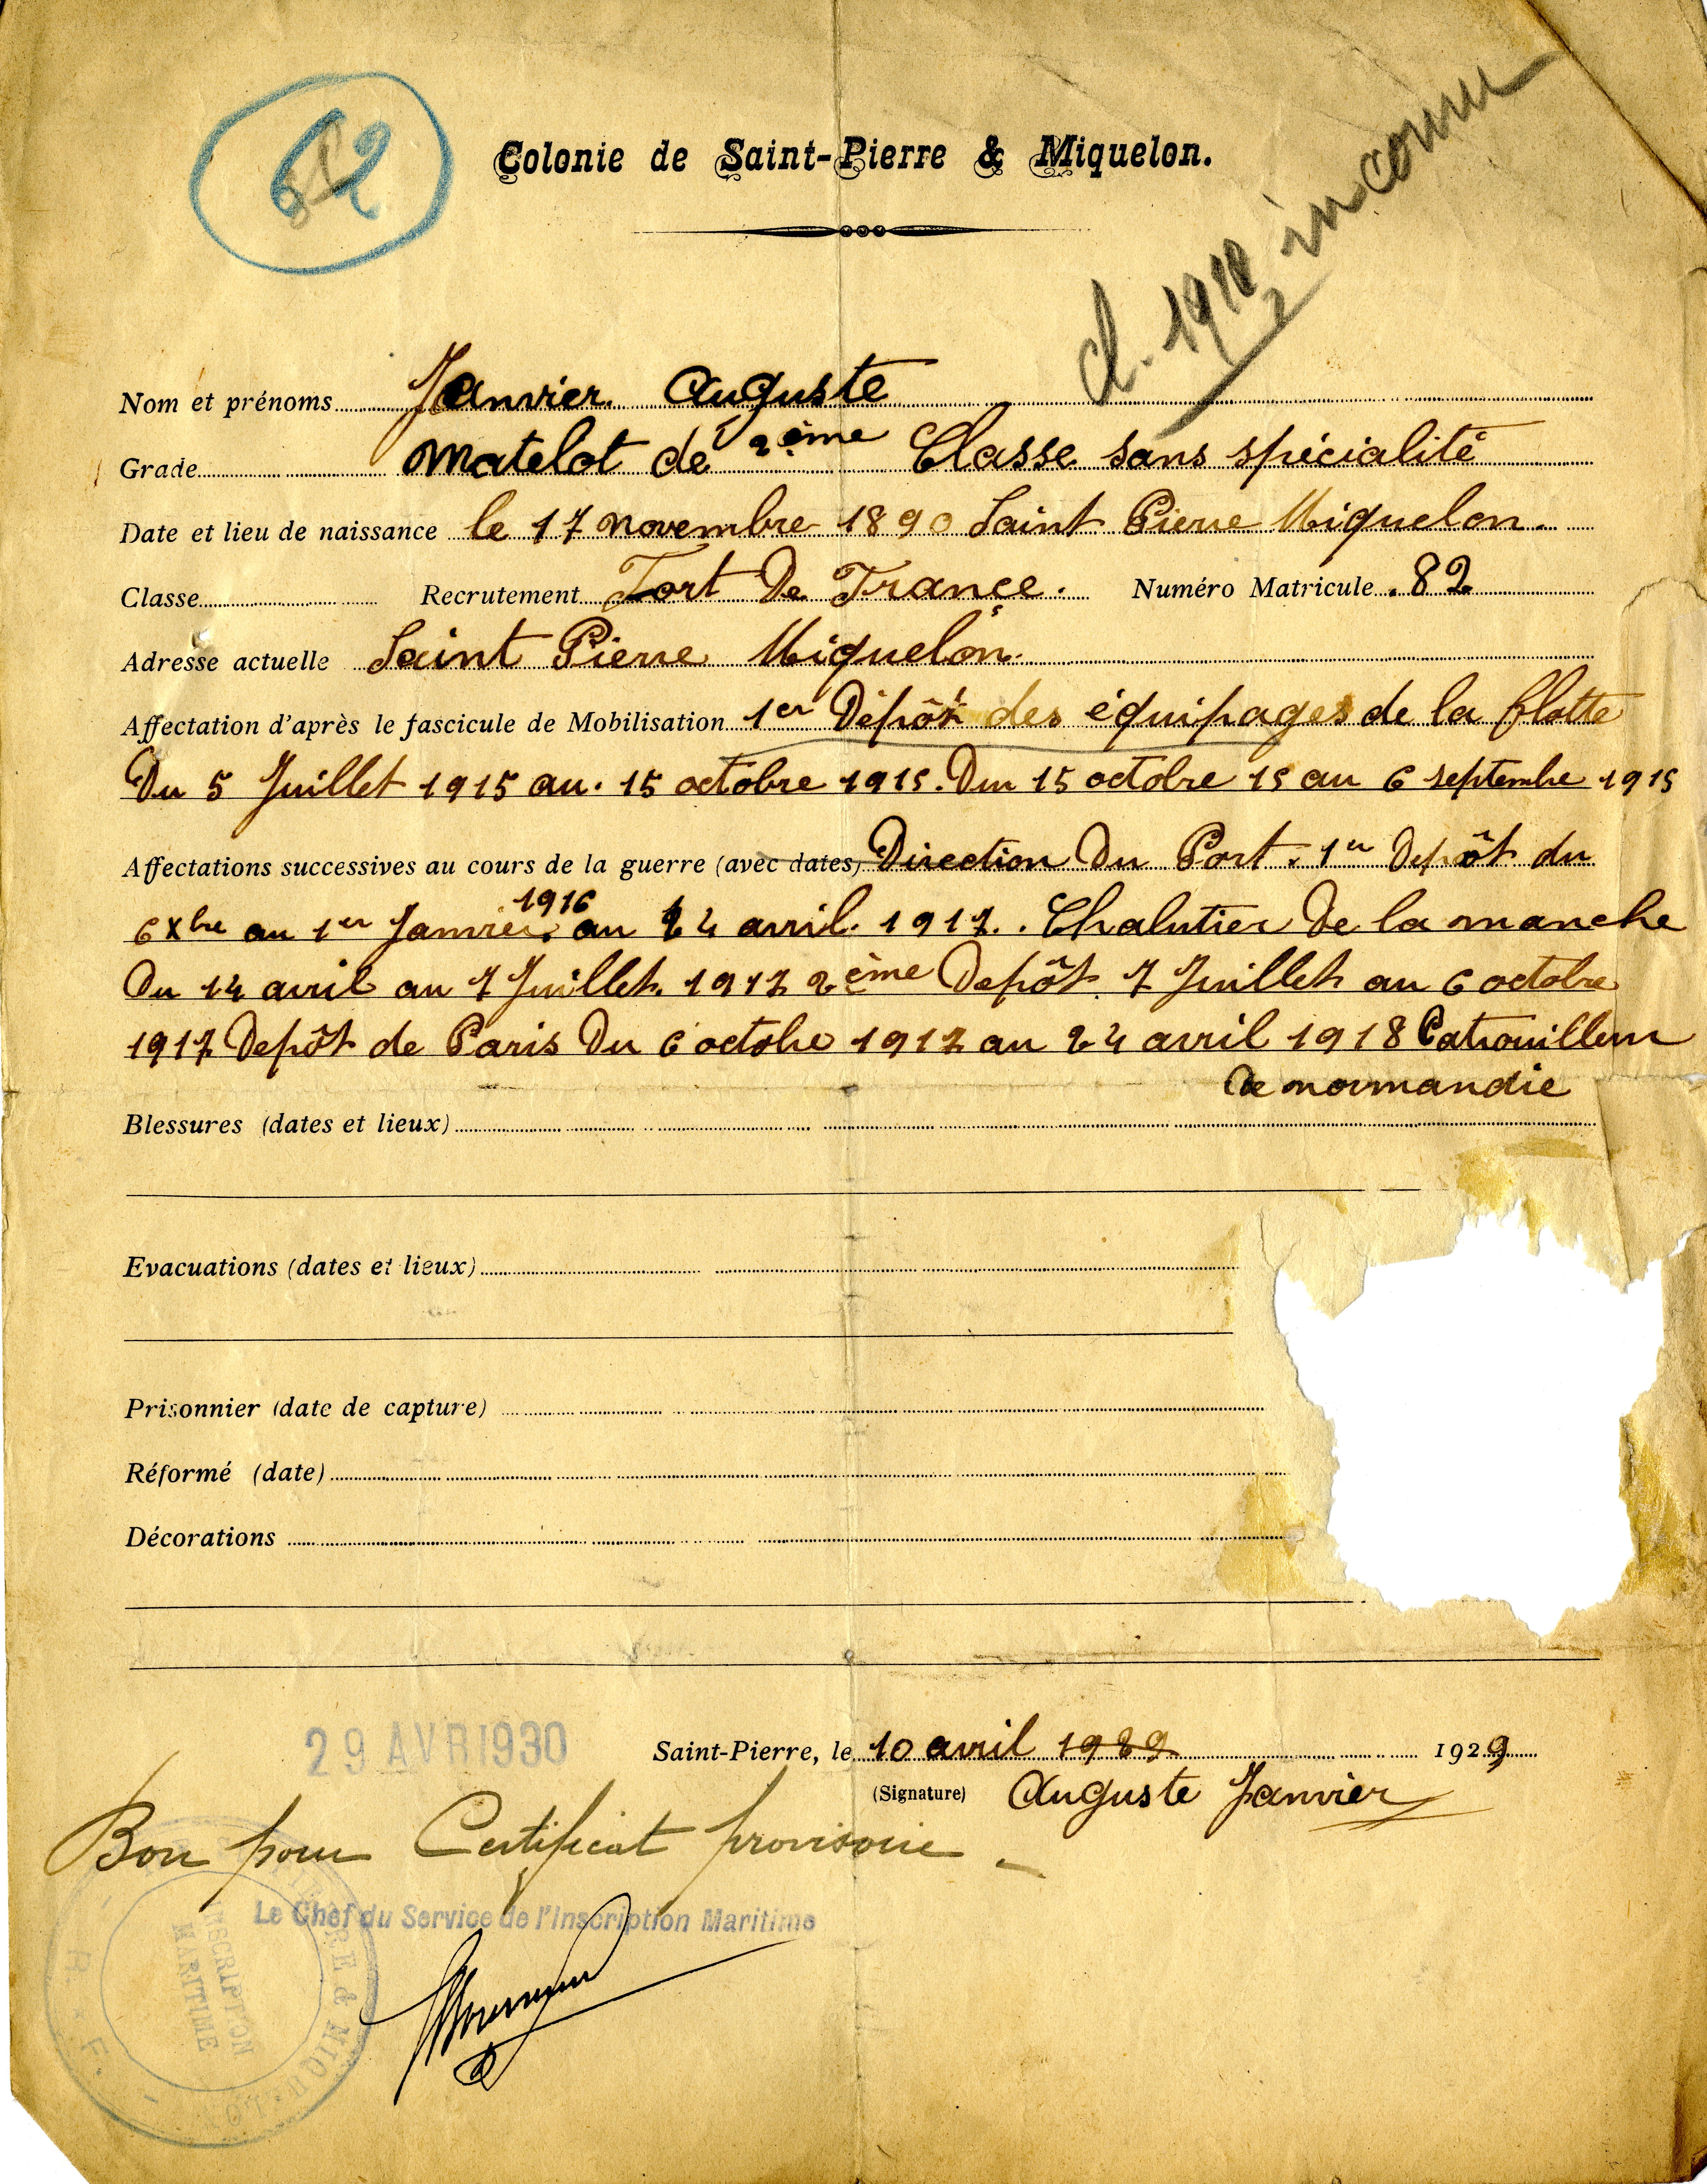 62
Colonie de Saint-Pierre & Miquelon.
cl. 1910 inconnu
2
Nom et prénoms Janvier Auguste
Grade Matelot de 2ème Classe sans spécialité
Date et lieu de naissance le 17 novembre 1890 Saint Pierre Miquelon.
Classe Recrutement Fort De France. Numéro Matricule 82
Adresse actuelle Saint Pierre Miquelon.
Affectation d'après le fascicule de Mobilisation 1er Dépôt des équipages de la flotte
Du 5 Juillet 1915 au. 15 octobre 1915. Du 15 octobre 15 au 6 septembre 1915
Affectations successives au cours de la guerre (avec dates) Direction Du Port. 1er Depôt du
6 xbre au 1er Janvier 1916 au 24 avril. 1917.. Chalutier De la manche
Du 14 avril au 7 Juillet. 1917 2ème Depôt. 7 Juillet au 6 octobre
1917 Depôt de Paris Du 6 octobre 1917 au 24 avril 1918 Patrouilleur
De normandie
Blessures (dates et lieux)
Evacuations (dates et lieux)
Prisonnier (date de capture)
Réformé (date)
Décorations
29 AVR 1930
Saint-Pierre, le 10 avril 1929 1929
(Signature) Auguste Janvier
Bon pour Certificat provisoire -
Le Chef du Service de l'Inscription Maritime
INSCRIPTION
MARITIME
R. F.